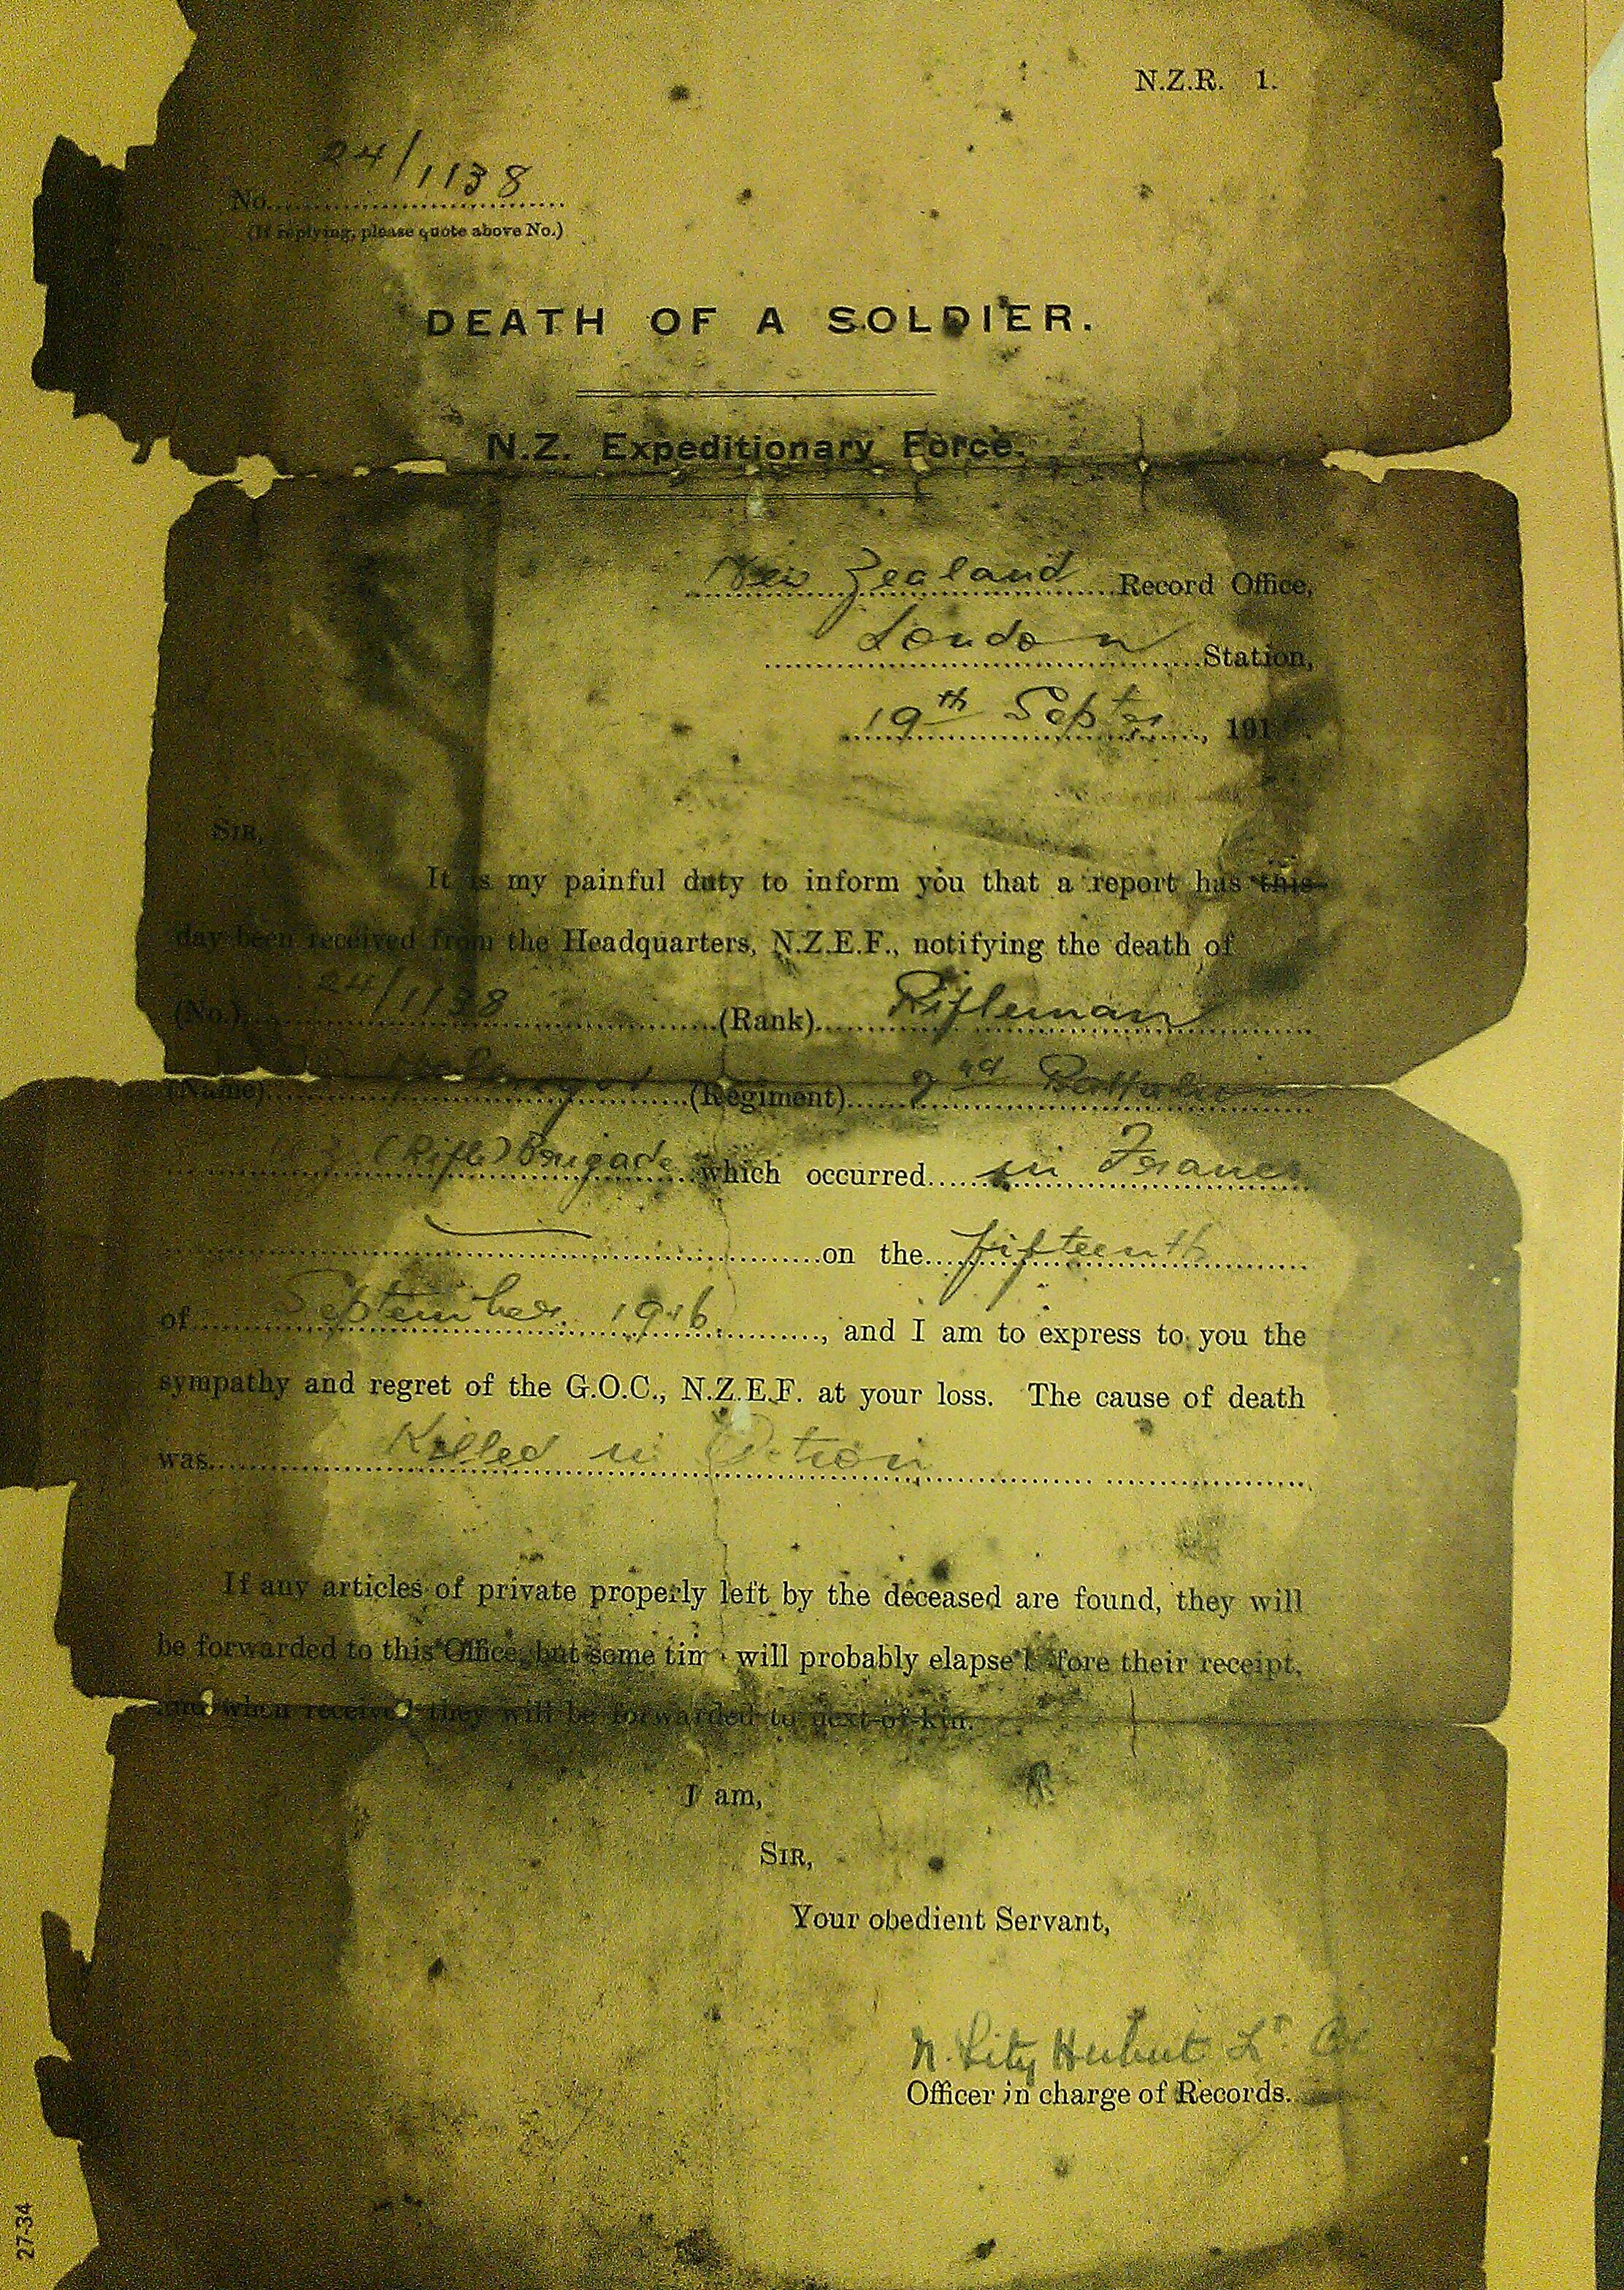 N.Z.R. 1.
No. 24/1138
(If replying, please quote above No.)
DEATH OF A SOLDIER.
N.Z. Expeditionary Force.
New Zealand Record Office,
London Station,
19th Septer, 191
SIR,
It is my painful duty to inform you that a report has this
day been received from the Headquarters, N.Z.E.F., notifying the death of
(No.) 24/1138 (Rank) Rifleman
(Name) (Regiment) 2nd Battalion
N.Z. (Rifle) Brigade which occurred in France
on the fifteenth
of September 1916, and I am to express to you the
sympathy and regret of the G.O.C., N.Z.E.F. at your loss. The cause of death
was Killed in Action
If any articles of private property left by the deceased are found, they will
be forwarded to this Office, but some time will probably elapse before their receipt,
and when received they will be forwarded to next-of-kin.
I am,
SIR,
Your obedient Servant,
N. Lt Col
Officer in charge of Records.
27-34